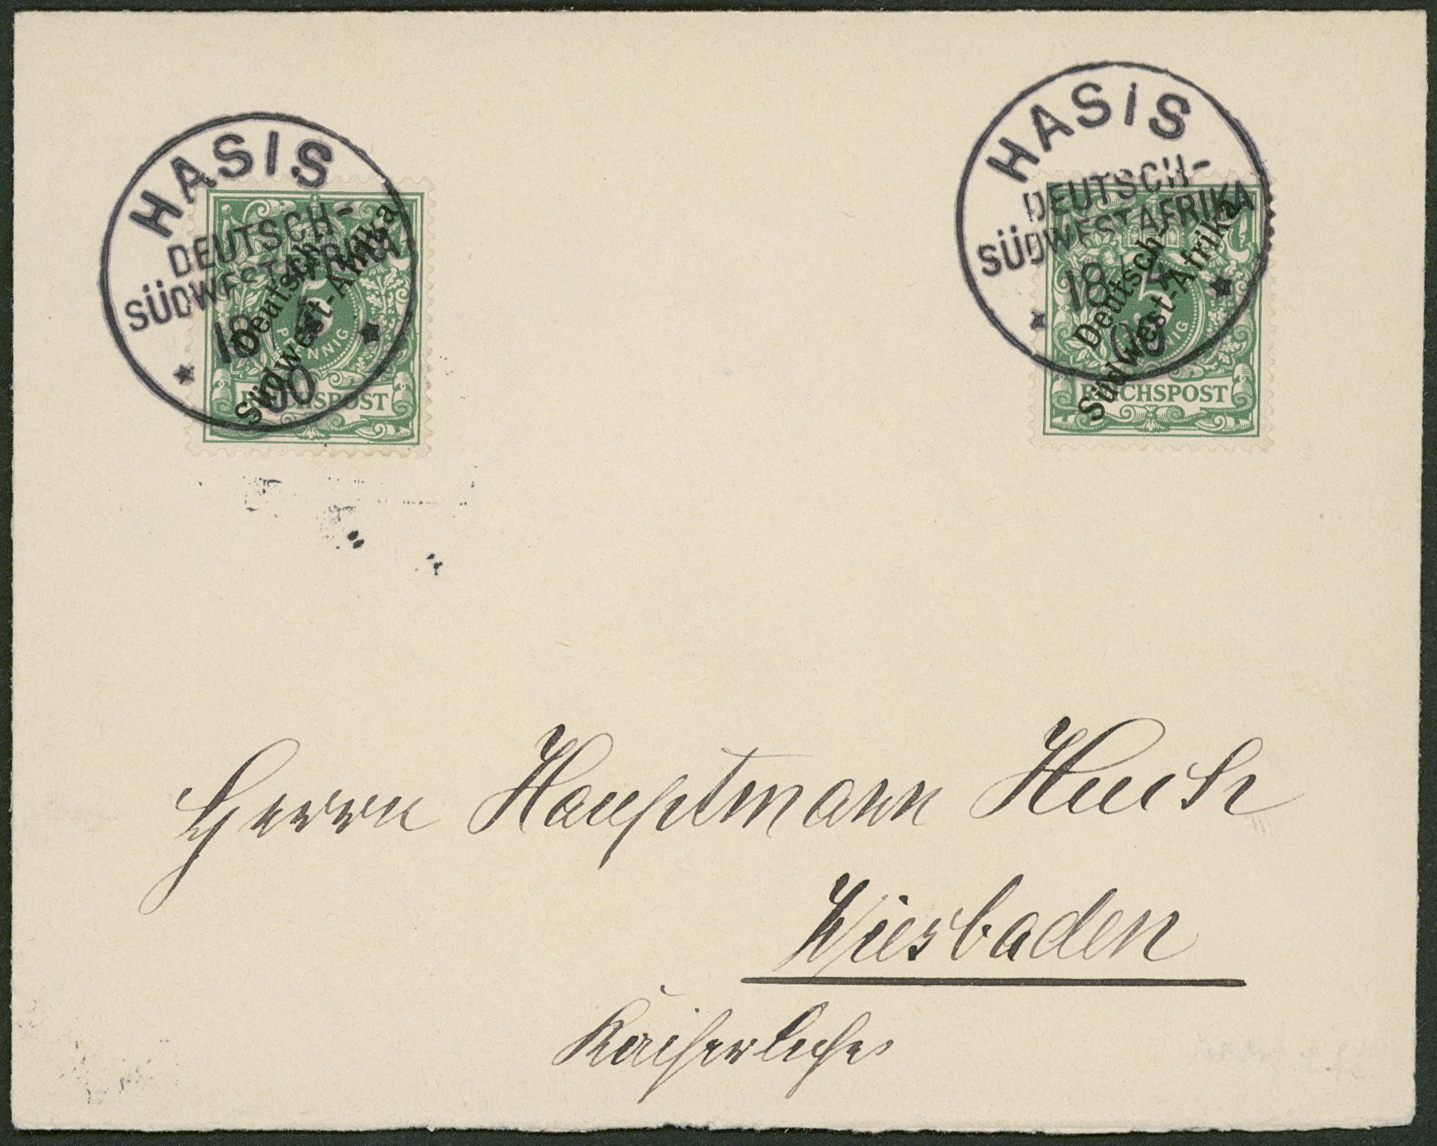 HASIS
DEUTSCH-
SÜDWESTAFRIKA
18
00
Deutsch-
Südwest-Afrika
5
PFENNIG
REICHSPOST
HASIS
DEUTSCH-
SÜDWESTAFRIKA
18 4
00
Deutsch-
Südwest-Afrika
5
PFENNIG
REICHSPOST
Herrn Hauptmann Huch
Wiesbaden
Kaiserliches